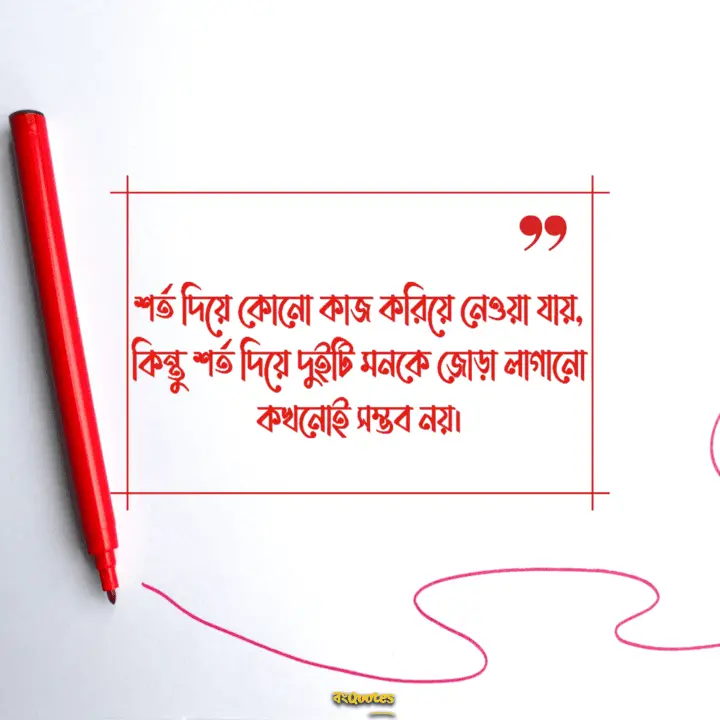 ”
শর্ত দিয়ে কোনো কাজ করিয়ে নেওয়া যায়,
কিন্তু শর্ত দিয়ে দুইটি মনকে জোড়া লাগানো
কখনোই সম্ভব নয়।
বংQuotes